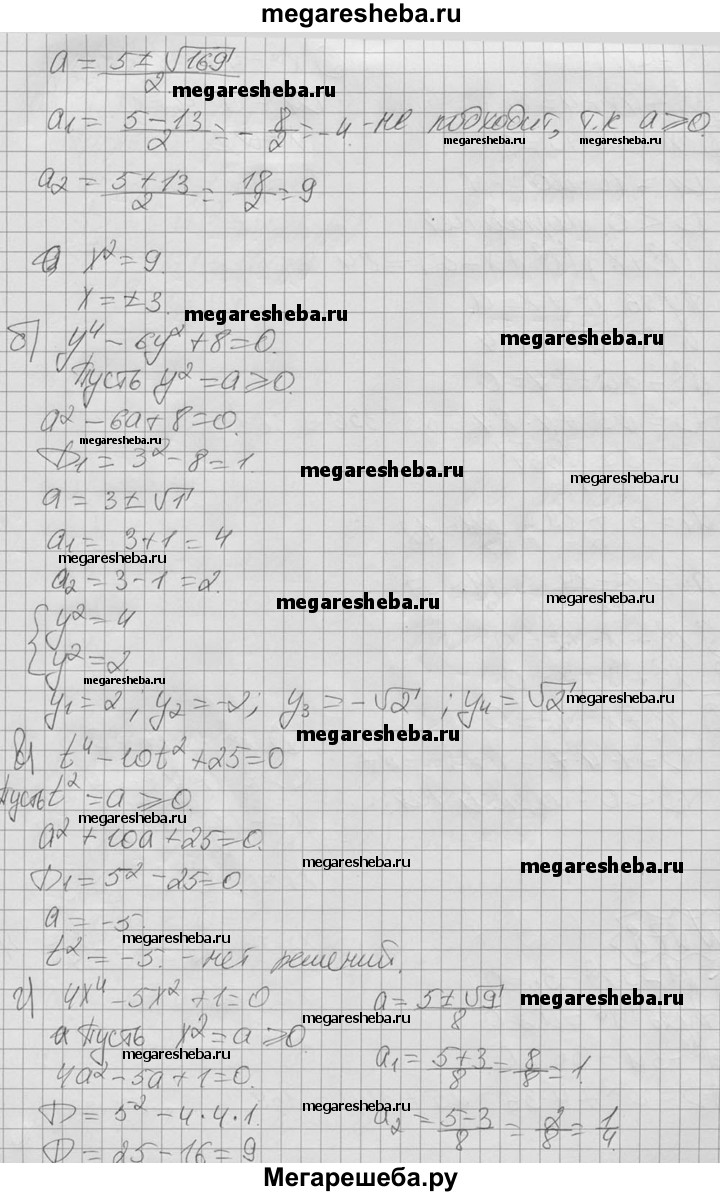 megaresheba.ru
a = (5 ± √169)/2
megaresheba.ru
a1 = (5 - 13)/2 = - 8/2 = -4. - не подходит, т.к a ⩾ 0.
megaresheba.ru megaresheba.ru
a2 = (5 + 13)/2 = 18/2 = 9
x² = 9.
x = ± 3.
megaresheba.ru
б) y⁴ - 6y² + 8 = 0.
megaresheba.ru
Пусть y² = a ⩾ 0.
a² - 6a + 8 = 0.
megaresheba.ru
D1 = 3² - 8 = 1.
megaresheba.ru
megaresheba.ru
a = 3 ± √1
a1 = 3 + 1 = 4
megaresheba.ru
a2 = 3 - 1 = 2.
megaresheba.ru
megaresheba.ru
{ y² = 4
y² = 2.
megaresheba.ru
y1 = 2, y2 = -2; y3 = -√2; y4 = √2
megaresheba.ru
megaresheba.ru
в) t⁴ - 10t² + 25 = 0
Пусть t² = a ⩾ 0.
megaresheba.ru
a² + 10a + 25 = 0.
megaresheba.ru
megaresheba.ru
D1 = 5² - 25 = 0.
a = -5.
megaresheba.ru
t² = -5. - нет решений.
г) 4x⁴ - 5x² + 1 = 0
Пусть x² = a ⩾ 0.
megaresheba.ru
4a² - 5a + 1 = 0.
D = 5² - 4·4·1.
D = 25 - 16 = 9
a = (5 ± √9)/8
megaresheba.ru
megaresheba.ru
a1 = (5 + 3)/8 = 8/8 = 1.
megaresheba.ru
megaresheba.ru
a2 = (5 - 3)/8 = 2/8 = 1/4.
megaresheba.ru
Мегарешеба.ру